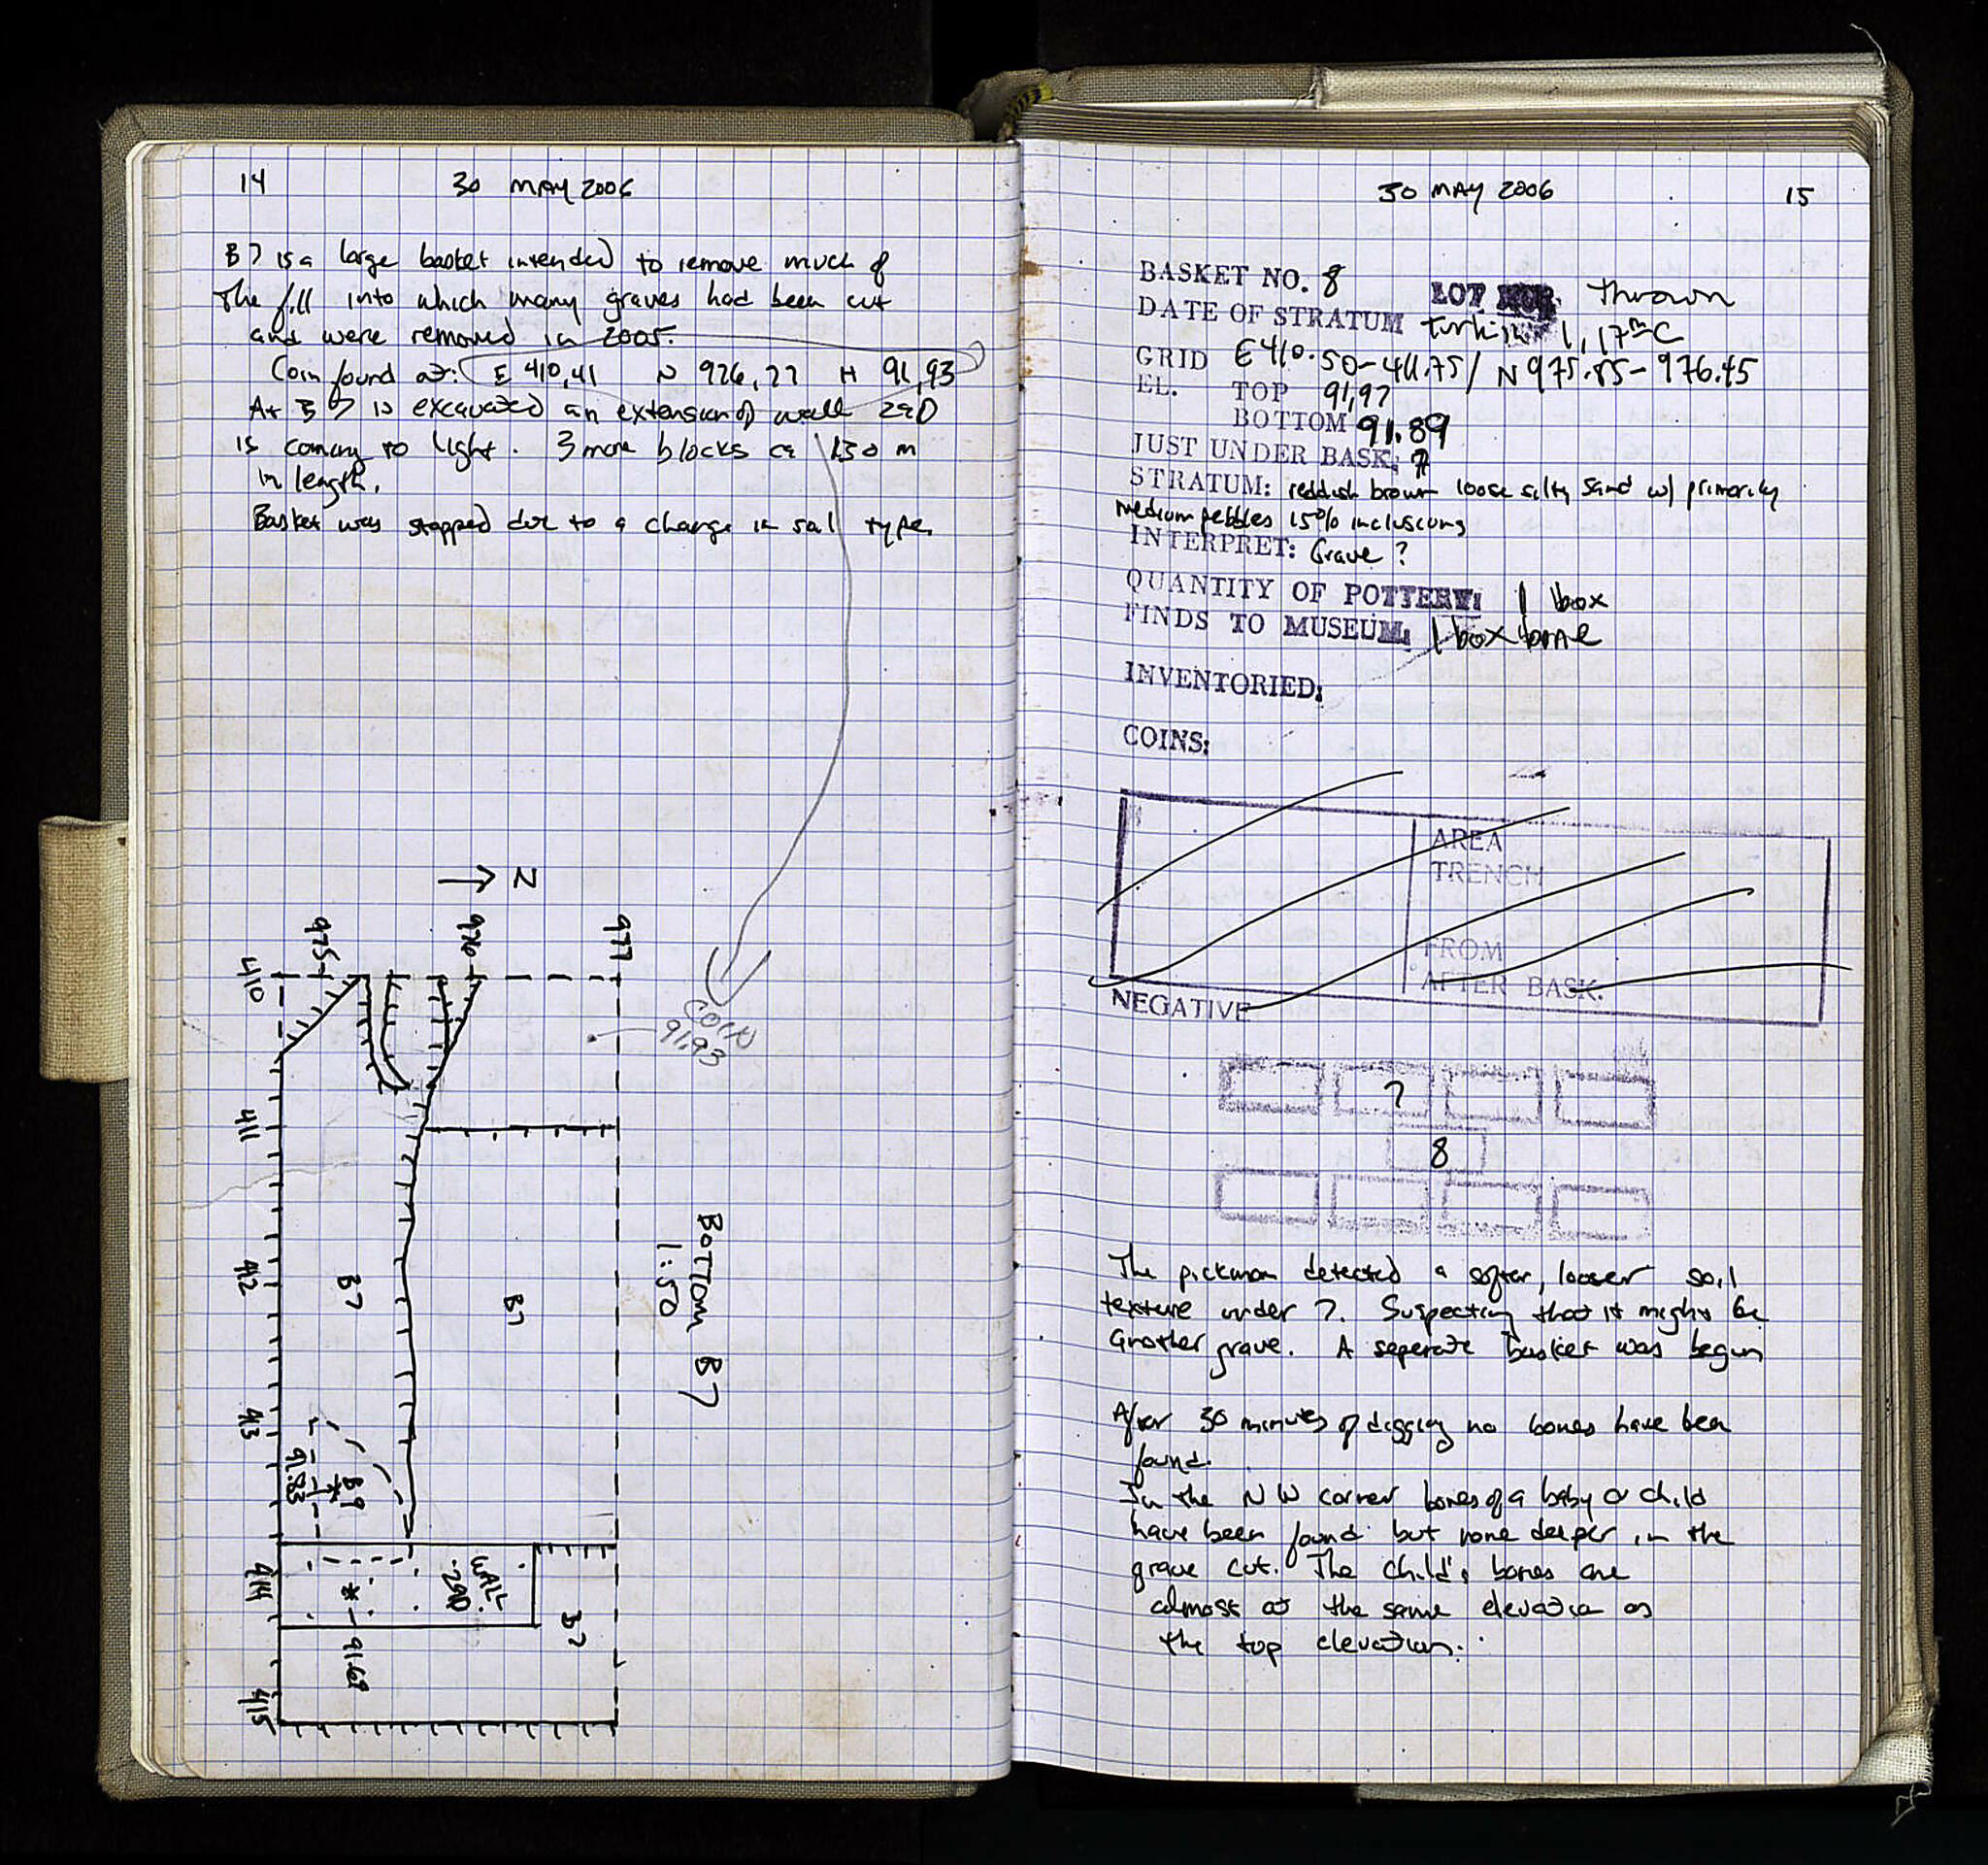 14 30 MAY 2006
B7 is a large basket intended to remove much of
the fill into which many graves had been cut
and were removed in 2005.
Coin found at: E 410,41 N 976,77 H 91,93
As B7 is excavated an extension of wall 290
is coming to light. 3 more blocks ca 1.50 m
in length.
Basket was stopped due to a change in soil type.
N
975 976 977
410
COIN
91.93
411
BOTTOM B7
1:50
412
B7
B7
413
B9
91.83
WALL
290
B7
414
91.68
415
30 MAY 2006 15
BASKET NO. 8 LOT thrown
DATE OF STRATUM Turkish 1, 17th C
GRID E410.50-411.75/ N975.85-976.45
EL. TOP 91,97
BOTTOM 91.89
JUST UNDER BASK: 7
STRATUM: reddish brown loose silty sand w/ primarily
medium pebbles 15% inclusions
INTERPRET: Grave?
QUANTITY OF POTTERY: 1 box
FINDS TO MUSEUM: 1 box bone
INVENTORIED:
COINS:
AREA
TRENCH
FROM
AFTER BASK.
NEGATIVE
7
8
The pickman detected a softer, looser soil
texture under 7. Suspecting that it might be
another grave. A seperate basket was begun
After 30 minutes of digging no bones have been
found.
In the NW corner bones of a baby or child
have been found but none deeper in the
grave cut. The child's bones are
almost at the same elevation as
the top elevation.